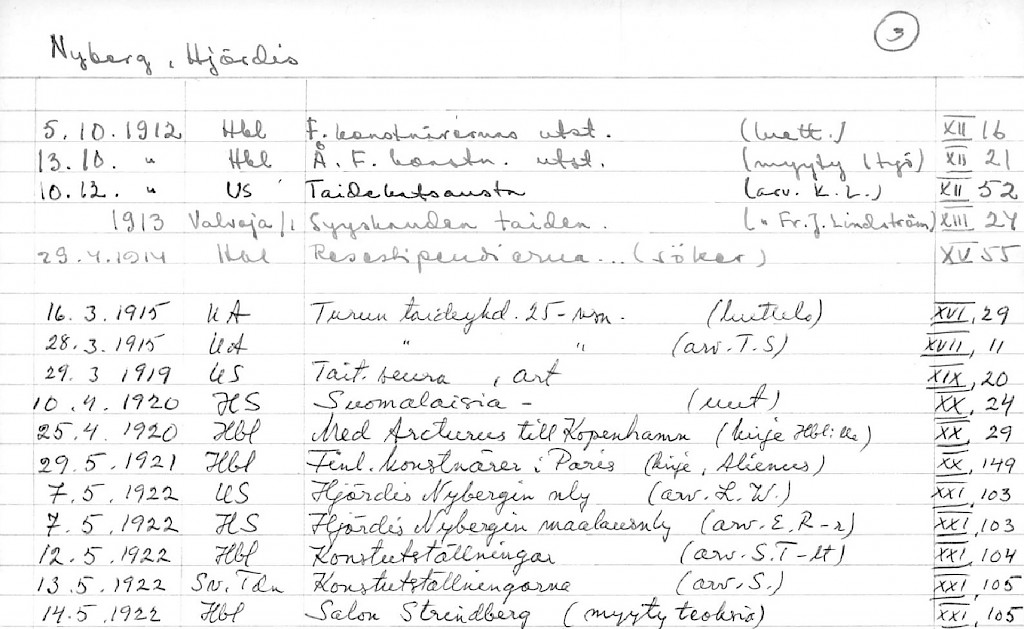 3
Nyberg, Hjördis
5.10.1912 Hbl F. konstnärernas utst. (luett.) XII 16
13.10. " Hbl Å. F. konstn. utst. (myyty 1 työ) XII 21
10.12. " US Taidekatsausta (arv. K.L.) XII 52
1913 Valvoja/1 Syyskauden taiden. (" Fr. J. Lindström) XIII 24
29.4.1914 Hbl Resestipendierna... (söker) XV 55
16.3.1915 UA Turun taideyhd. 25-vsn. (luettelo) XVI, 29
28.3.1915 UA " " (arv. T.S) XVII, 11
29.3 1919 US Tait. seura, art XIX, 20
10.4.1920 HS Suomalaisia - (uut) XX, 24
25.4.1920 Hbl Med Arcturus till Kopenhamn (kirje Hbl:lle) XX, 29
29.5.1921 Hbl Finl. konstnärer i Paris (kirje, Alienus) XX, 149
7.5.1922 US Hjördis Nybergin nly (arv. L.W.) XXI, 103
7.5.1922 HS Hjördis Nybergin maalausnly (arv. E.R-r) XXI, 103
12.5.1922 Hbl Konstutställningar (arv. S.T-lt) XXI, 104
13.5.1922 Sv. Tdn Konstutställningarna (arv. S.) XXI, 105
14.5.1922 Hbl Salon Strindberg (myyty teoksia) XXI, 105